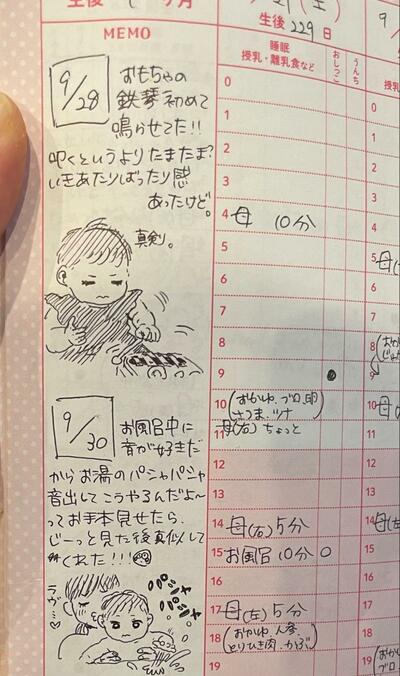 生後 ヶ月
MEMO
9/28
おもちゃの
鉄琴初めて
鳴らせてた!!
叩くというよりたまたま?
いきあたりばったり感
あったけど。
真剣。
9/30
お風呂中に
音が好きだ
からお湯のパシャパシャ
音出してこうやるんだよ〜
ってお手本見せたら、
じーっと見た後真似して
くれた!!!
ラヴ…♡
(土)
生後 229 日
睡眠
授乳・離乳食など
おしっこ
うんち
0
1
2
3
4 母 10分
5
6
7
8
9 ●
10 (おかゆ、ブロ、卵
さつま、ツナ)
11 母(右)ちょっと
12
13
14 母(右)5分
15 お風呂10分 〇
16
17 母(左)5分
18 (おかゆ、人参、
とりひき肉、かぶ)
19
9
0
1
2
3
4
5 母
6
7
8
9
10 母
11
12
13
14 母(左
15
16
17
18
19